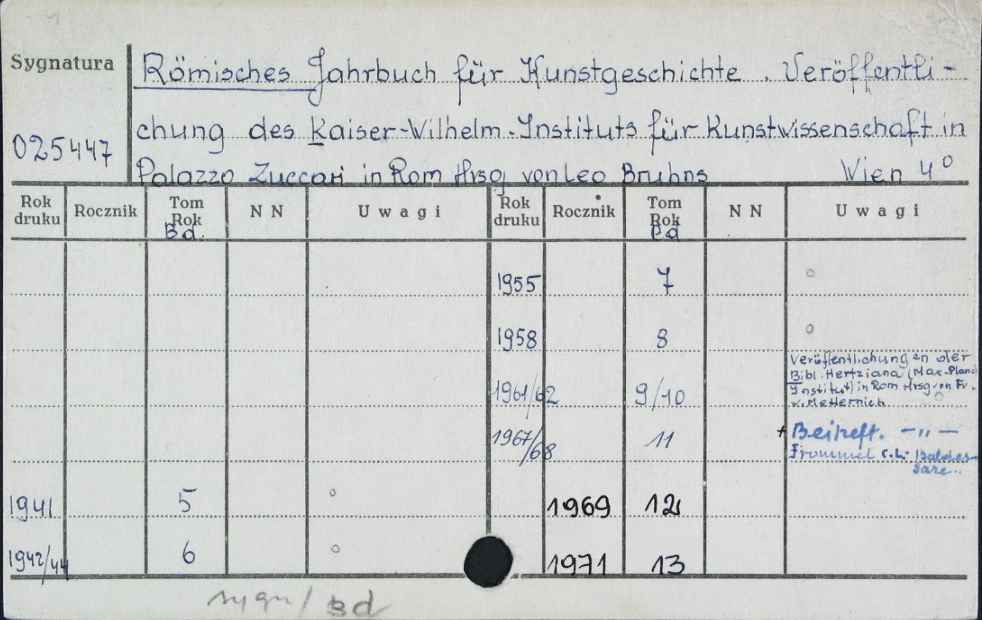 Sygnatura Römisches Jahrbuch für Kunstgeschichte. Veröffentli-
025447 chung des Kaiser-Wilhelm-Instituts für Kunstwissenschaft in
Palazzo Zuccari in Rom Hrsg von Leo Bruhns Wien 4°
Rok druku Rocznik Tom Rok Bd. NN Uwagi Rok druku Rocznik Tom Rok Bd NN Uwagi
1955 7 o
1958 8 o
1961/62 9/10 Veröffentlichungen der
Bibl. Hertziana (Max-Planc
Institut) in Rom Hrsg von Fr.
v. Metternich
1967/68 11 + Beiheft. -"-
Frommel C.L. Baldas-
sare..
1941 5 o 1969 12
1942/44 6 o 1971 13
sygn/Bd